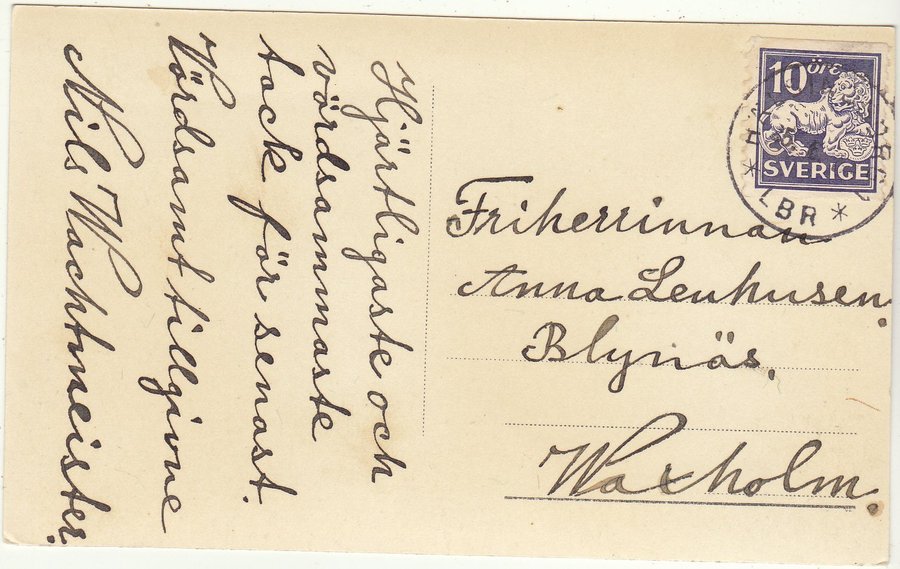 Hjärtligaste och
vördsammaste
tack för senast.
Vördsamt tillgivne
Nils Wachtmeister.
10 ÖRE
SVERIGE
LBR
Friherrinnan
Anna Leuhusen.
Blynäs,
Waxholm.